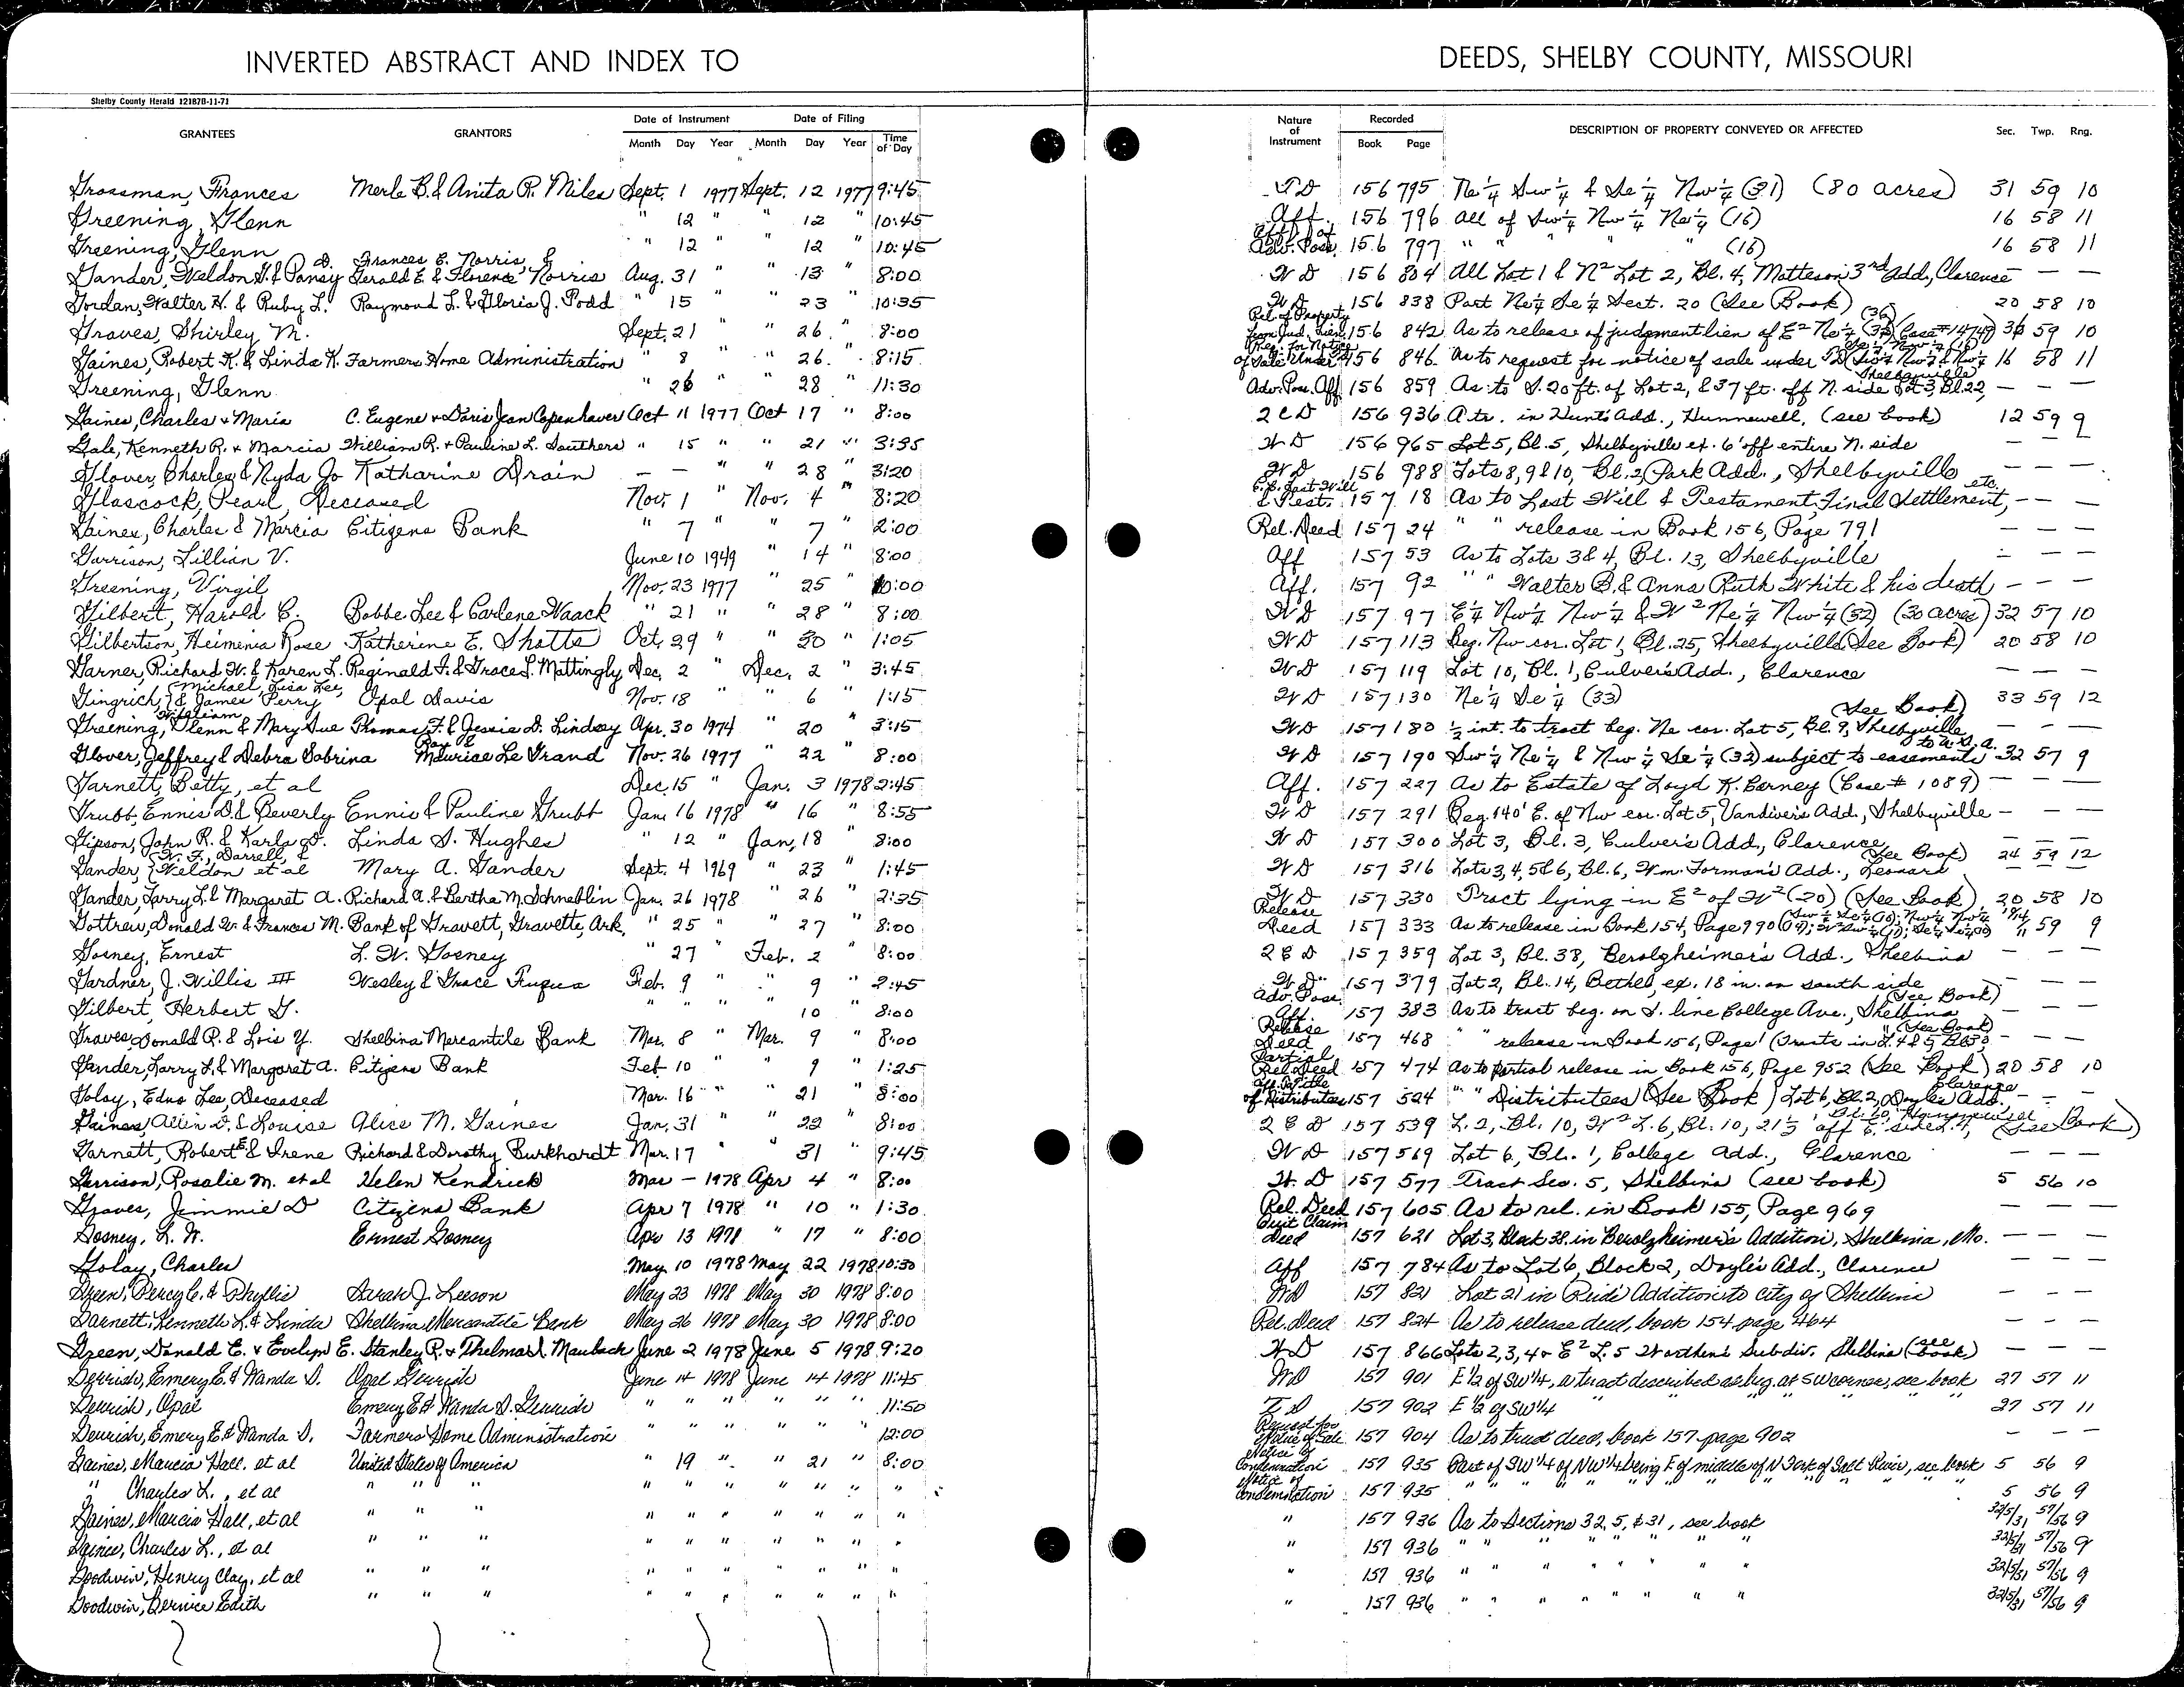 INVERTED ABSTRACT AND INDEX TO
DEEDS, SHELBY COUNTY, MISSOURI
Shelby County Herald 121878-11-71
GRANTEES GRANTORS Date of Instrument Month Day Year Date of Filing Month Day Year Time of Day Nature of Instrument Recorded Book Page DESCRIPTION OF PROPERTY CONVEYED OR AFFECTED Sec. Twp. Rng.
Grossman, Frances Merle B. & Anita R. Miles Sept. 1 1977 Sept. 12 1977 9:45 TD 156 795 Ne 1/4 Sw 1/4 & Se 1/4 Nw 1/4 (31) (80 acres) 31 59 10
Greening, Glenn " 12 " " 12 " 10:45 Aff. 156 796 All of Sw 1/4 Nw 1/4 Ne 1/4 (16) 16 58 11
Greening, Glenn " 12 " " 12 " 10:45 Aff. of Adv. Poss. 156 797 " " " " " (16) 16 58 11
Gander, Weldon G. & Pansy D. Frances E. Norris, & Gerald E. & Florence Norris Aug. 31 " " 13 " 8:00 WD 156 804 All Lot 1 & N2 Lot 2, Bl. 4, Matteson 3rd Add., Clarence — —
Gordan, Walter H. & Ruby L. Raymond L. & Gloria J. Podd " 15 " 23 " 10:35 WD 156 838 Part Ne 1/4 Se 1/4 Sect. 20 (See Book) 20 58 10
Graves, Shirley M. Sept. 21 " " 26 " 8:00 Rel. of Property from Jud. Lien 156 842 As to release of judgment lien of E2 Ne 1/4 (36) (Case #14747) 36 59 10
Gaines, Robert K. & Linda K. Farmers Home Administration " 8 " 26 " 8:15 Req. for Notice of Sale Under 156 846 As to request for notice of sale under TD 16 58 11
Greening, Glenn " 26 " 28 " 11:30 Adv. Poss. Aff. 156 859 As to S. 20 ft. of Lot 2, & 37 ft. off N. side Lot 3, Bl. 22, Shelbyville — — —
Gaines, Charles + Maria C. Eugene + Doris Jean Copenhaver Oct 11 1977 Oct 17 " 8:00 2CD 156 936 A tr. in Hunts Add., Hunnewell, (see book) 12 59 9
Gale, Kenneth R. + Marcia William R. + Pauline L. Southers " 15 " " 21 " 3:35 WD 156 965 Lot 5, Bl. 5, Shelbyville ex. 6' off entire N. side — — —
Glover, Charles & Nyda Jo Katharine Drain — — " " 28 " 3:20 WD 156 988 Lots 8, 9 & 10, Bl. 2, Park Add., Shelbyville — — —
Glascock, Pearl, Deceased Nov. 1 " Nov. 4 " 8:20 C.C. Last Will & Test. 157 18 As to Last Will & Testament, Final Settlement, etc. — —
Gaines, Charles & Marcia Citizens Bank " 7 " " 7 " 2:00 Rel. Deed 157 24 " " release in Book 156, Page 791 — — —
Garrison, Lillian V. June 10 1949 " 14 " 8:00 Aff 157 53 As to Lots 3 & 4, Bl. 13, Shelbyville — — —
Greening, Virgil Nov. 23 1977 " 25 " 10:00 Aff. 157 92 " " Walter B. & Anna Ruth White & his death — — —
Gilbert, Harold C. Bobbe Lee & Carlene Waack " 21 " " 28 " 8:00 WD 157 97 E 1/4 Nw 1/4 Nw 1/4 & W2 Ne 1/4 Nw 1/4 (32) (30 acres) 32 57 10
Gilbertson, Heimenia Rose Katherine E. Shotts Oct. 29 " " 30 " 1:05 WD 157 113 Beg. Nw cor. Lot 1, Bl. 25, Shelbyville (See Book) 20 58 10
Garner, Richard W. & Karen L. Reginald F. & Grace L. Mattingly Dec. 2 " Dec. 2 " 3:45 WD 157 119 Lot 10, Bl. 1, Culver's Add., Clarence — — —
Gingrich, Michael, Lisa Lee, & James Perry Opal Davis Nov. 18 " " 6 " 1:15 WD 157 130 Ne 1/4 Se 1/4 (33) 33 59 12
Greening, William Glenn & Mary Sue Thomas F. & Jessie D. Lindsay Apr. 30 1974 " 20 " 3:15 WD 157 180 1/2 int. to tract beg. Ne cor. Lot 5, Bl. 9, Shelbyville (See Book) — — —
Glover, Jeffrey & Debra Sabrina Maurice Le Grand Nov. 26 1977 " 22 " 8:00 WD 157 190 Sw 1/4 Ne 1/4 & Nw 1/4 Se 1/4 (32) subject to easements to U.S.A. 32 57 9
Garnett, Betty, et al Dec. 15 " Jan. 3 1978 2:45 Aff. 157 227 As to Estate of Loyd K. Berney (Case # 1089) — — —
Grubb, Ennis D. & Beverly Ennis & Pauline Grubb Jan. 16 1978 " 16 " 8:55 WD 157 291 Beg. 140' E. of Nw cor. Lot 5, Vandiver's Add., Shelbyville — — —
Gipson, John R. & Karla D. Linda S. Hughes " 12 " Jan. 18 " 8:00 WD 157 300 Lot 3, Bl. 3, Culver's Add., Clarence — — —
Gander, W. F., Darrell, & Weldon et al Mary A. Gander Sept. 4 1969 " 23 " 1:45 WD 157 316 Lots 3, 4, 5 & 6, Bl. 6, Wm. Forman's Add., Leonard (See Book) 24 59 12
Gander, Larry L. & Margaret A. Richard A. & Bertha M. Schneblin Jan. 26 1978 " 26 " 2:35 WD 157 330 Tract lying in E2 of W2 (20) (See Book) 20 58 10
Gottrew, Donald W. & Frances M. Bank of Gravett, Gravette, Ark. " 25 " " 27 " 8:00 Release Deed 157 333 As to release in Book 154, Page 990 59 9
Gosney, Ernest L. W. Gosney " 27 Feb. 2 " 8:00 2CD 157 359 Lot 3, Bl. 38, Berolzheimer's Add., Shelbina — —
Gardner, J. Willis III Wesley & Grace Fuqua Feb. 9 " " 9 " 2:45 WD 157 379 Lot 2, Bl. 14, Bethel, ex. 18 in. on south side — — —
Gilbert, Herbert G. " " " " 10 " 8:00 Adv. Poss. Aff. 157 383 As to tract beg. on S. line College Ave., Shelbina (See Book) — — —
Graves, Donald R. & Lois Y. Shelbina Mercantile Bank Mar. 8 " Mar. 9 " 8:00 Release Deed 157 468 " " release in Book 156, Page 1 (See Book) — — —
Gander, Larry L. & Margaret A. Citizens Bank Feb 10 " " 9 " 1:25 Partial Rel. Deed 157 474 As to partial release in Book 156, Page 952 (See Book) 20 58 10
Golay, Edna Lee, Deceased Mar. 16 " " 21 " 8:00 Aff. of Title of Distributees 157 524 " " Distributees (See Book) Lot 6, Bl. 2, Doyle's Add. Clarence — — —
Gaines, Allen D. & Louise Alice M. Gaines Jan. 31 " " 22 " 8:00 2CD 157 539 L. 2, Bl. 10, W2 L. 6, Bl. 10, 21 1/3' off E. side L. 7, Bl. 10, Hunnewell (See Book)
Garnett, Robert E. & Irene Richard & Dorothy Burkhardt Mar. 17 " " 31 " 9:45 WD 157 569 Lot 6, Bl. 1, College Add., Clarence — — —
Garrison, Rosalie M. et al Helen Kendrick Mar — 1978 Apr 4 " 8:00 W.D 157 577 Tract Sec. 5, Shelbina (see book) 5 56 10
Graves, Jimmie D Citizens Bank Apr 7 1978 " 10 " 1:30 Rel. Deed 157 605 As to rel. in Book 155, Page 969 — — —
Gosney, L. W. Ernest Gosney Apr 13 1978 " 17 " 8:00 Quit Claim Deed 157 621 Lot 3, Block 38 in Berolzheimer's Addition, Shelbina, Mo. — — —
Golay, Charles May 10 1978 May 22 1978 10:30 Aff 157 784 As to Lot 6, Block 2, Doyle's Add., Clarence — — —
Green, Percy C. & Phyllis Sarah J. Leeson May 23 1978 May 30 1978 8:00 WD 157 821 Lot 21 in Reids Addition to city of Shelbina — — —
Garnett, Kenneth L. & Linda Shelbina Mercantile Bank May 26 1978 May 30 1978 8:00 Rel. Deed 157 824 As to release deed, book 154 page 464 — — —
Green, Donald E. + Evelyn E. Stanley P. + Thelma I. Maubach June 2 1978 June 5 1978 9:20 WD 157 866 Lots 2, 3, 4 + E2 L. 5 Worthen's Subdiv. Shelbina (see book) — — —
Gerrish, Emery E. & Wanda D. Opal Gerrish June 14 1978 June 14 1978 11:45 WD 157 901 E 1/2 of SW 1/4, a tract described as beg. at SW corner, see book 27 57 11
Gerrish, Opal Emery E & Wanda D. Gerrish " " " " " " 11:50 TD 157 902 E 1/2 of SW 1/4 " " " " " 27 57 11
Gerrish, Emery E. & Wanda D. Farmers Home Administration " " " " " " 12:00 Request for Notice of Sale 157 904 As to trust deed, book 157 page 902 — — —
Gaines, Marcia Hall, et al United States of America " 19 " " 21 " 8:00 Notice of Condemnation 157 935 Part of SW 1/4 of NW 1/4 being E of middle of N Fork of Salt River, see book 5 56 9
" Charles L., et al " " " " " " " " " " Notice of Condemnation 157 935 " " " " " " " " 5 56 9
Gaines, Marcia Hall, et al " " " " " " " " " " " 157 936 As to Sections 32, 5, & 31, see book 32/5/31 57/56 9
Gaines, Charles L., et al " " " " " " " " " " " 157 936 " " " " " " " 32/5/31 57/56 9
Goodwin, Henry Clay, et al " " " " " " " " " " " 157 936 " " " " " " " 32/5/31 57/56 9
Goodwin, Bernice Edith " " " " " " " " " " " 157 936 " " " " " " " 32/5/31 57/56 9